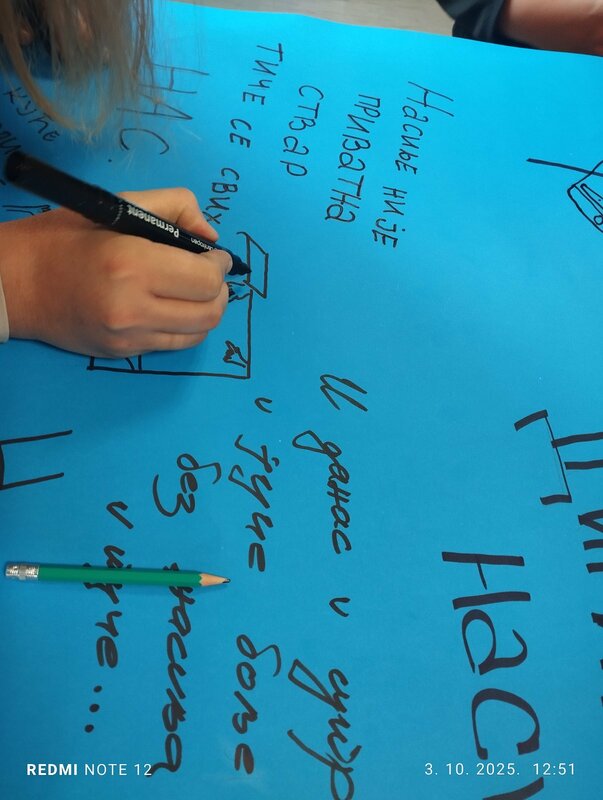 НАСИЉЕ НИЈЕ
ПРИВАТНА
СТВАР
ТИЧЕ СЕ СВИХ
НАС.
НАС
И данас и сутр
и јуче боље
без насиља
и
Permanent
REDMI NOTE 12
3. 10. 2025. 12:51